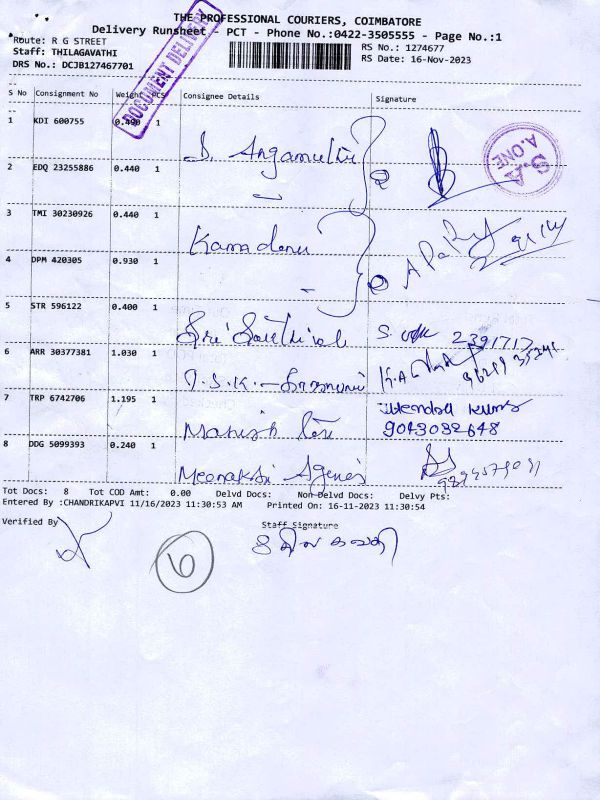 THE PROFESSIONAL COURIERS, COIMBATORE
Delivery Runsheet - PCT - Phone No.:0422-3505555 - Page No.:1
Route: R G STREET
Staff: THILAGAVATHI
DRS No.: DCJB127467701
RS No.: 1274677
RS Date: 16-Nov-2023
DOCUMENT DELIVERY
S No Consignment No Weight PCS Consignee Details Signature
1 KDI 600755 0.490 1 S. Angamuthu
S.A A.ONE
2 EDQ 23255886 0.440 1
3 TMI 30230926 0.440 1 Kamadenu
4 DPM 420305 0.930 1
5 STR 596122 0.400 1 Sri 2391717
6 ARR 30377381 1.030 1 T.S.K.
7 TRP 6742706 1.195 1 Manish Jitendra Kumar
9043032648
8 DDG 5099393 0.240 1 Meenakshi Agencies
Tot Docs: 8 Tot COD Amt: 0.00 Delvd Docs: Non-Delvd Docs: Delvy Pts:
Entered By :CHANDRIKAPVI 11/16/2023 11:30:53 AM Printed On: 16-11-2023 11:30:54
Verified By
Staff Signature
6
திலகவதி